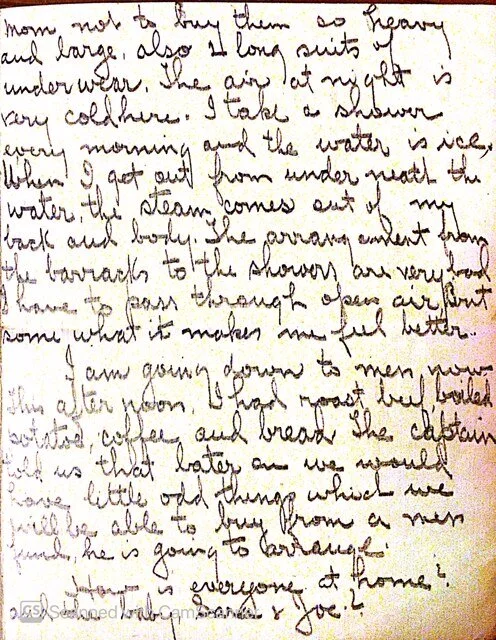 mom not to buy them so heavy
and large, also 2 long suits of
underwear. The air at night is
very cold here. I take a shower
every morning and the water is ice.
When I get out from under neath the
water, the steam comes out of my
back and body. The arrangement from
the barracks to the showers are very bad
I have to pass through open air But
some what it makes me feel better.
I am going down to mess now
This after noon, I had roast beef, boiled
potatoe, coffee and bread The captain
told us that later on we would
have little odd things which we
will be able to buy from a mess
fund, he is going to arrange.
How is everyone at home?
and the baby & Joe?
CS Scanned with CamScanner